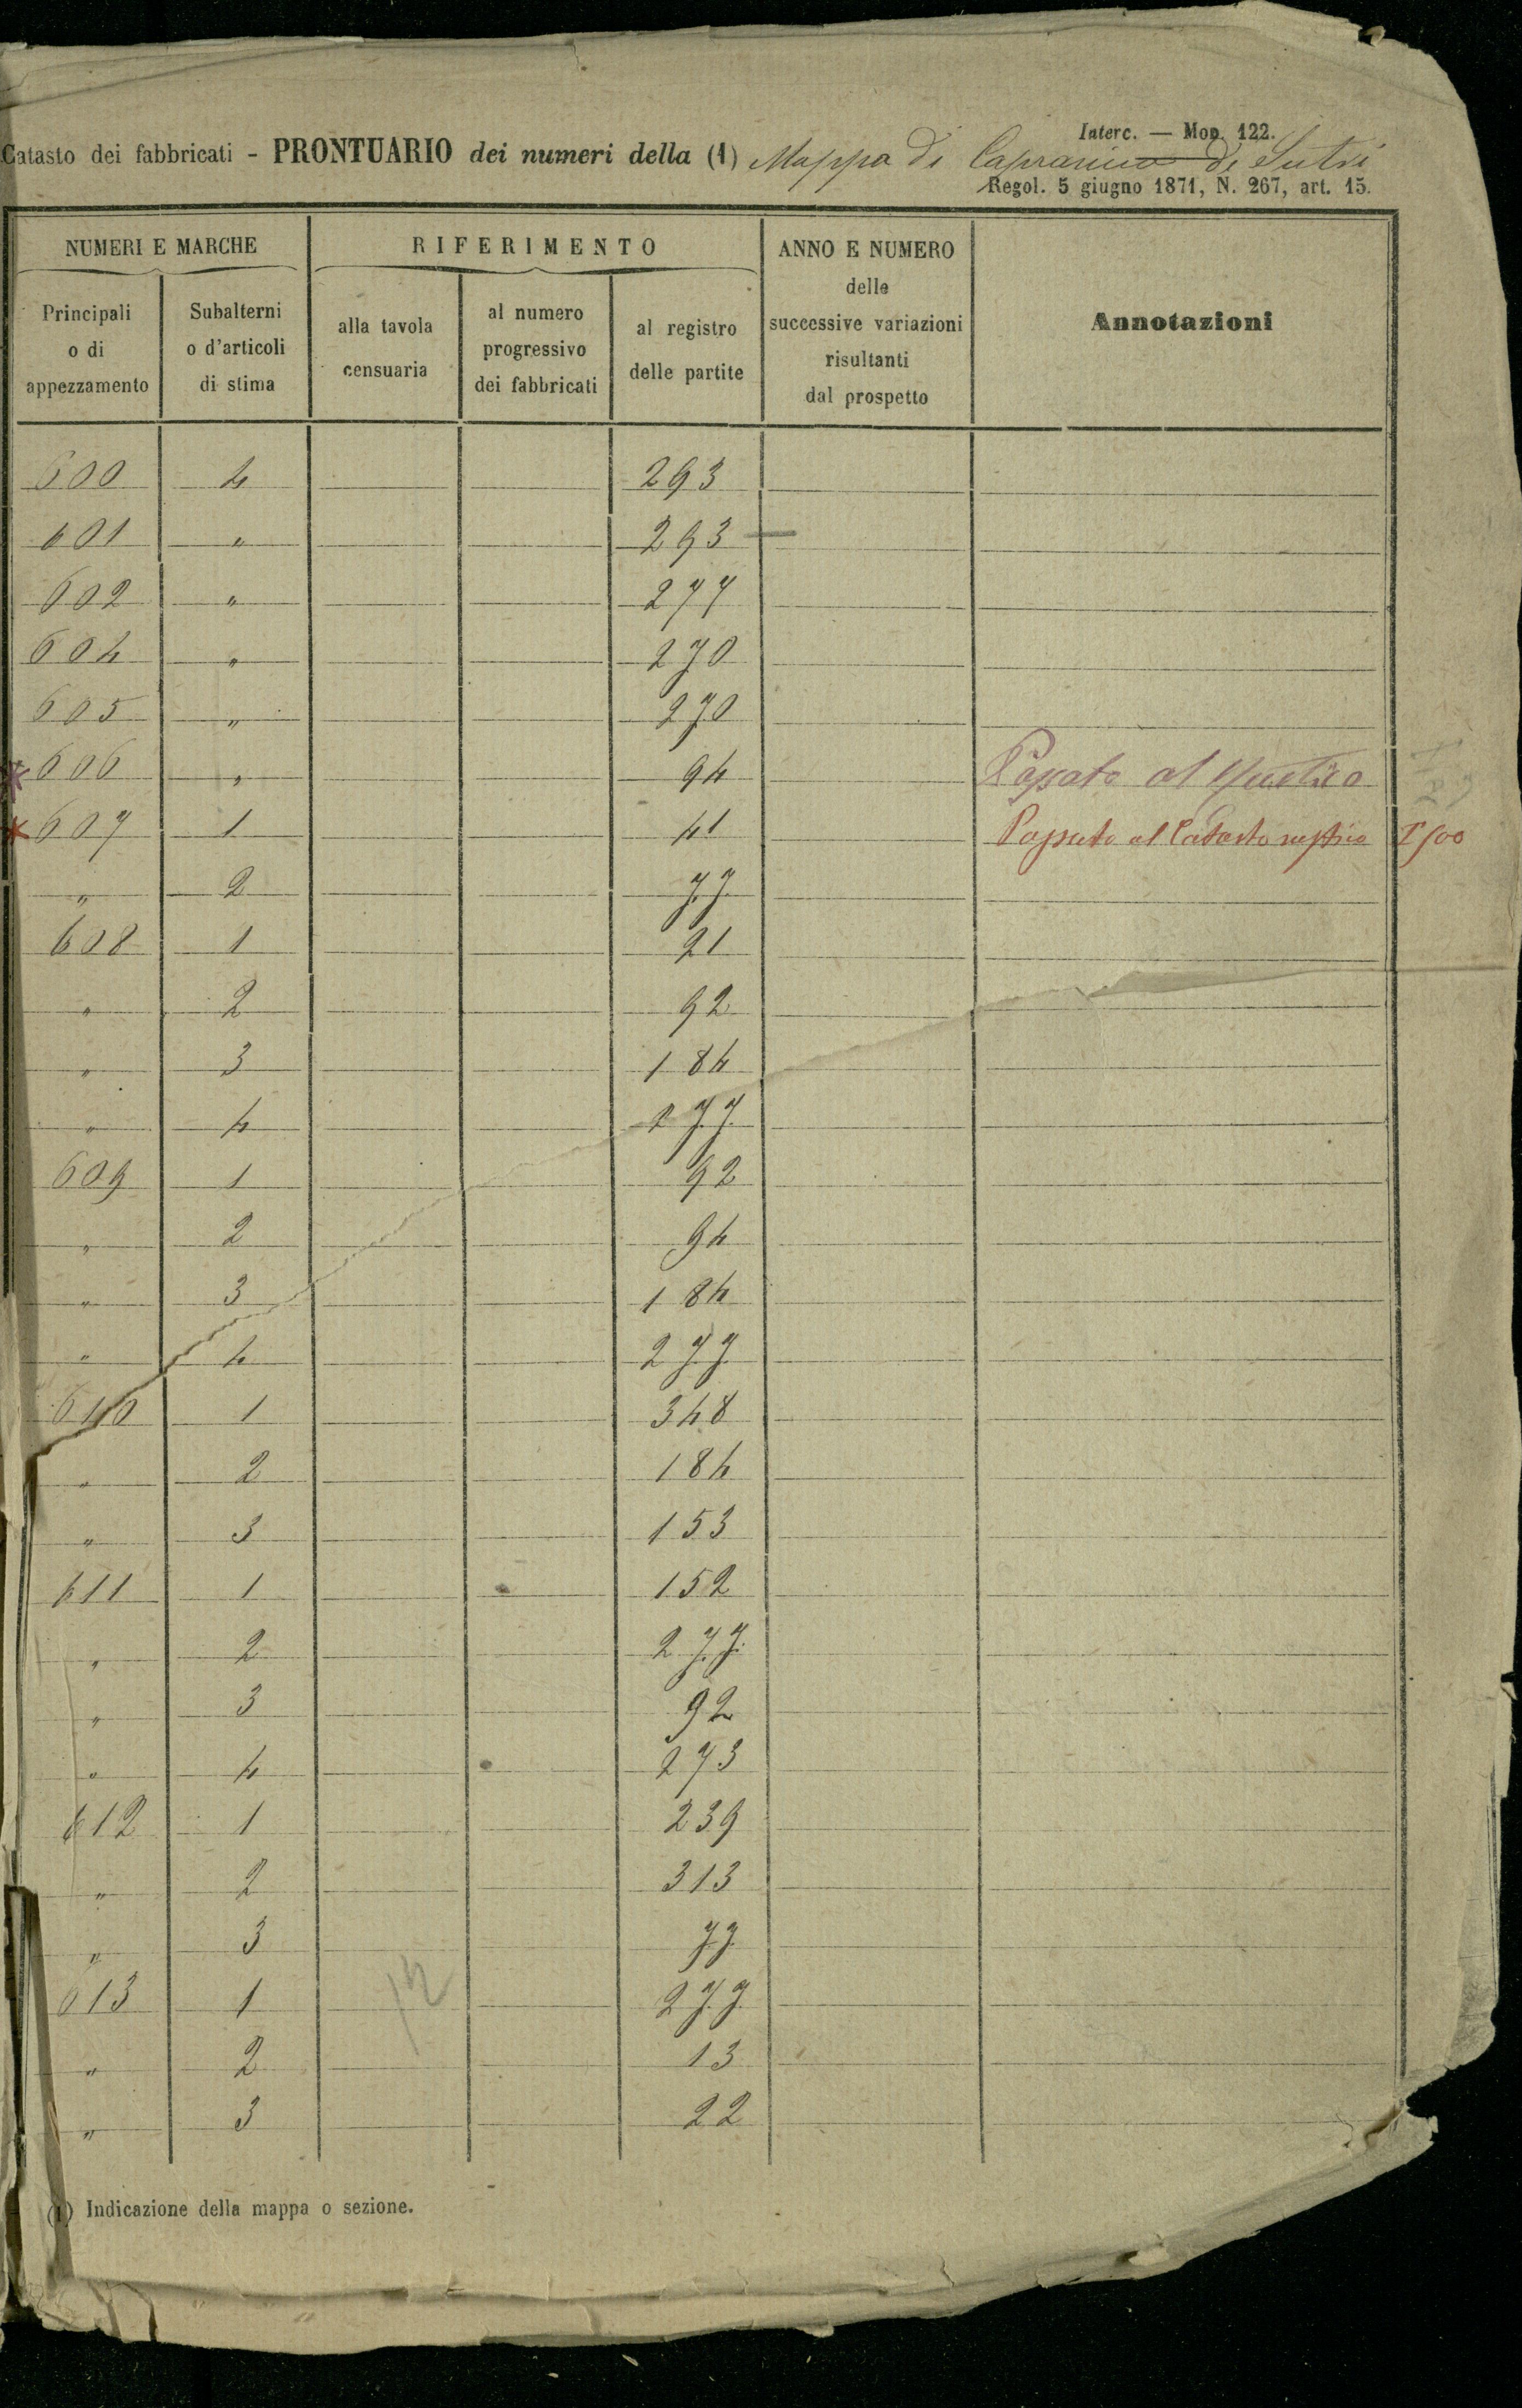 Interc. — Mod. 122.
Catasto dei fabbricati - PRONTUARIO dei numeri della (1) Mappa di Capranica di Sutri
Regol. 5 giugno 1871, N. 267, art. 15.
NUMERI E MARCHE RIFERIMENTO ANNO E NUMERO delle successive variazioni risultanti dal prospetto Annotazioni
Principali o di appezzamento Subalterni o d'articoli di stima alla tavola censuaria al numero progressivo dei fabbricati al registro delle partite
600 4 293
601 " 293
602 " 277
604 " 270
605 " 270
606 " 94 Passato al Rustico
607 1 41 Passato al Catasto rustico
" 2 77
608 1 21
" 2 92
" 3 184
" 4 277
609 1 92
" 2 94
" 3 184
" 4 277
610 1 348
" 2 184
" 3 153
611 1 152
" 2 277
" 3 92
" 4 273
612 1 239
" 2 313
" 3 77
613 1 277
" 2 13
" 3 22
12
(1) Indicazione della mappa o sezione.